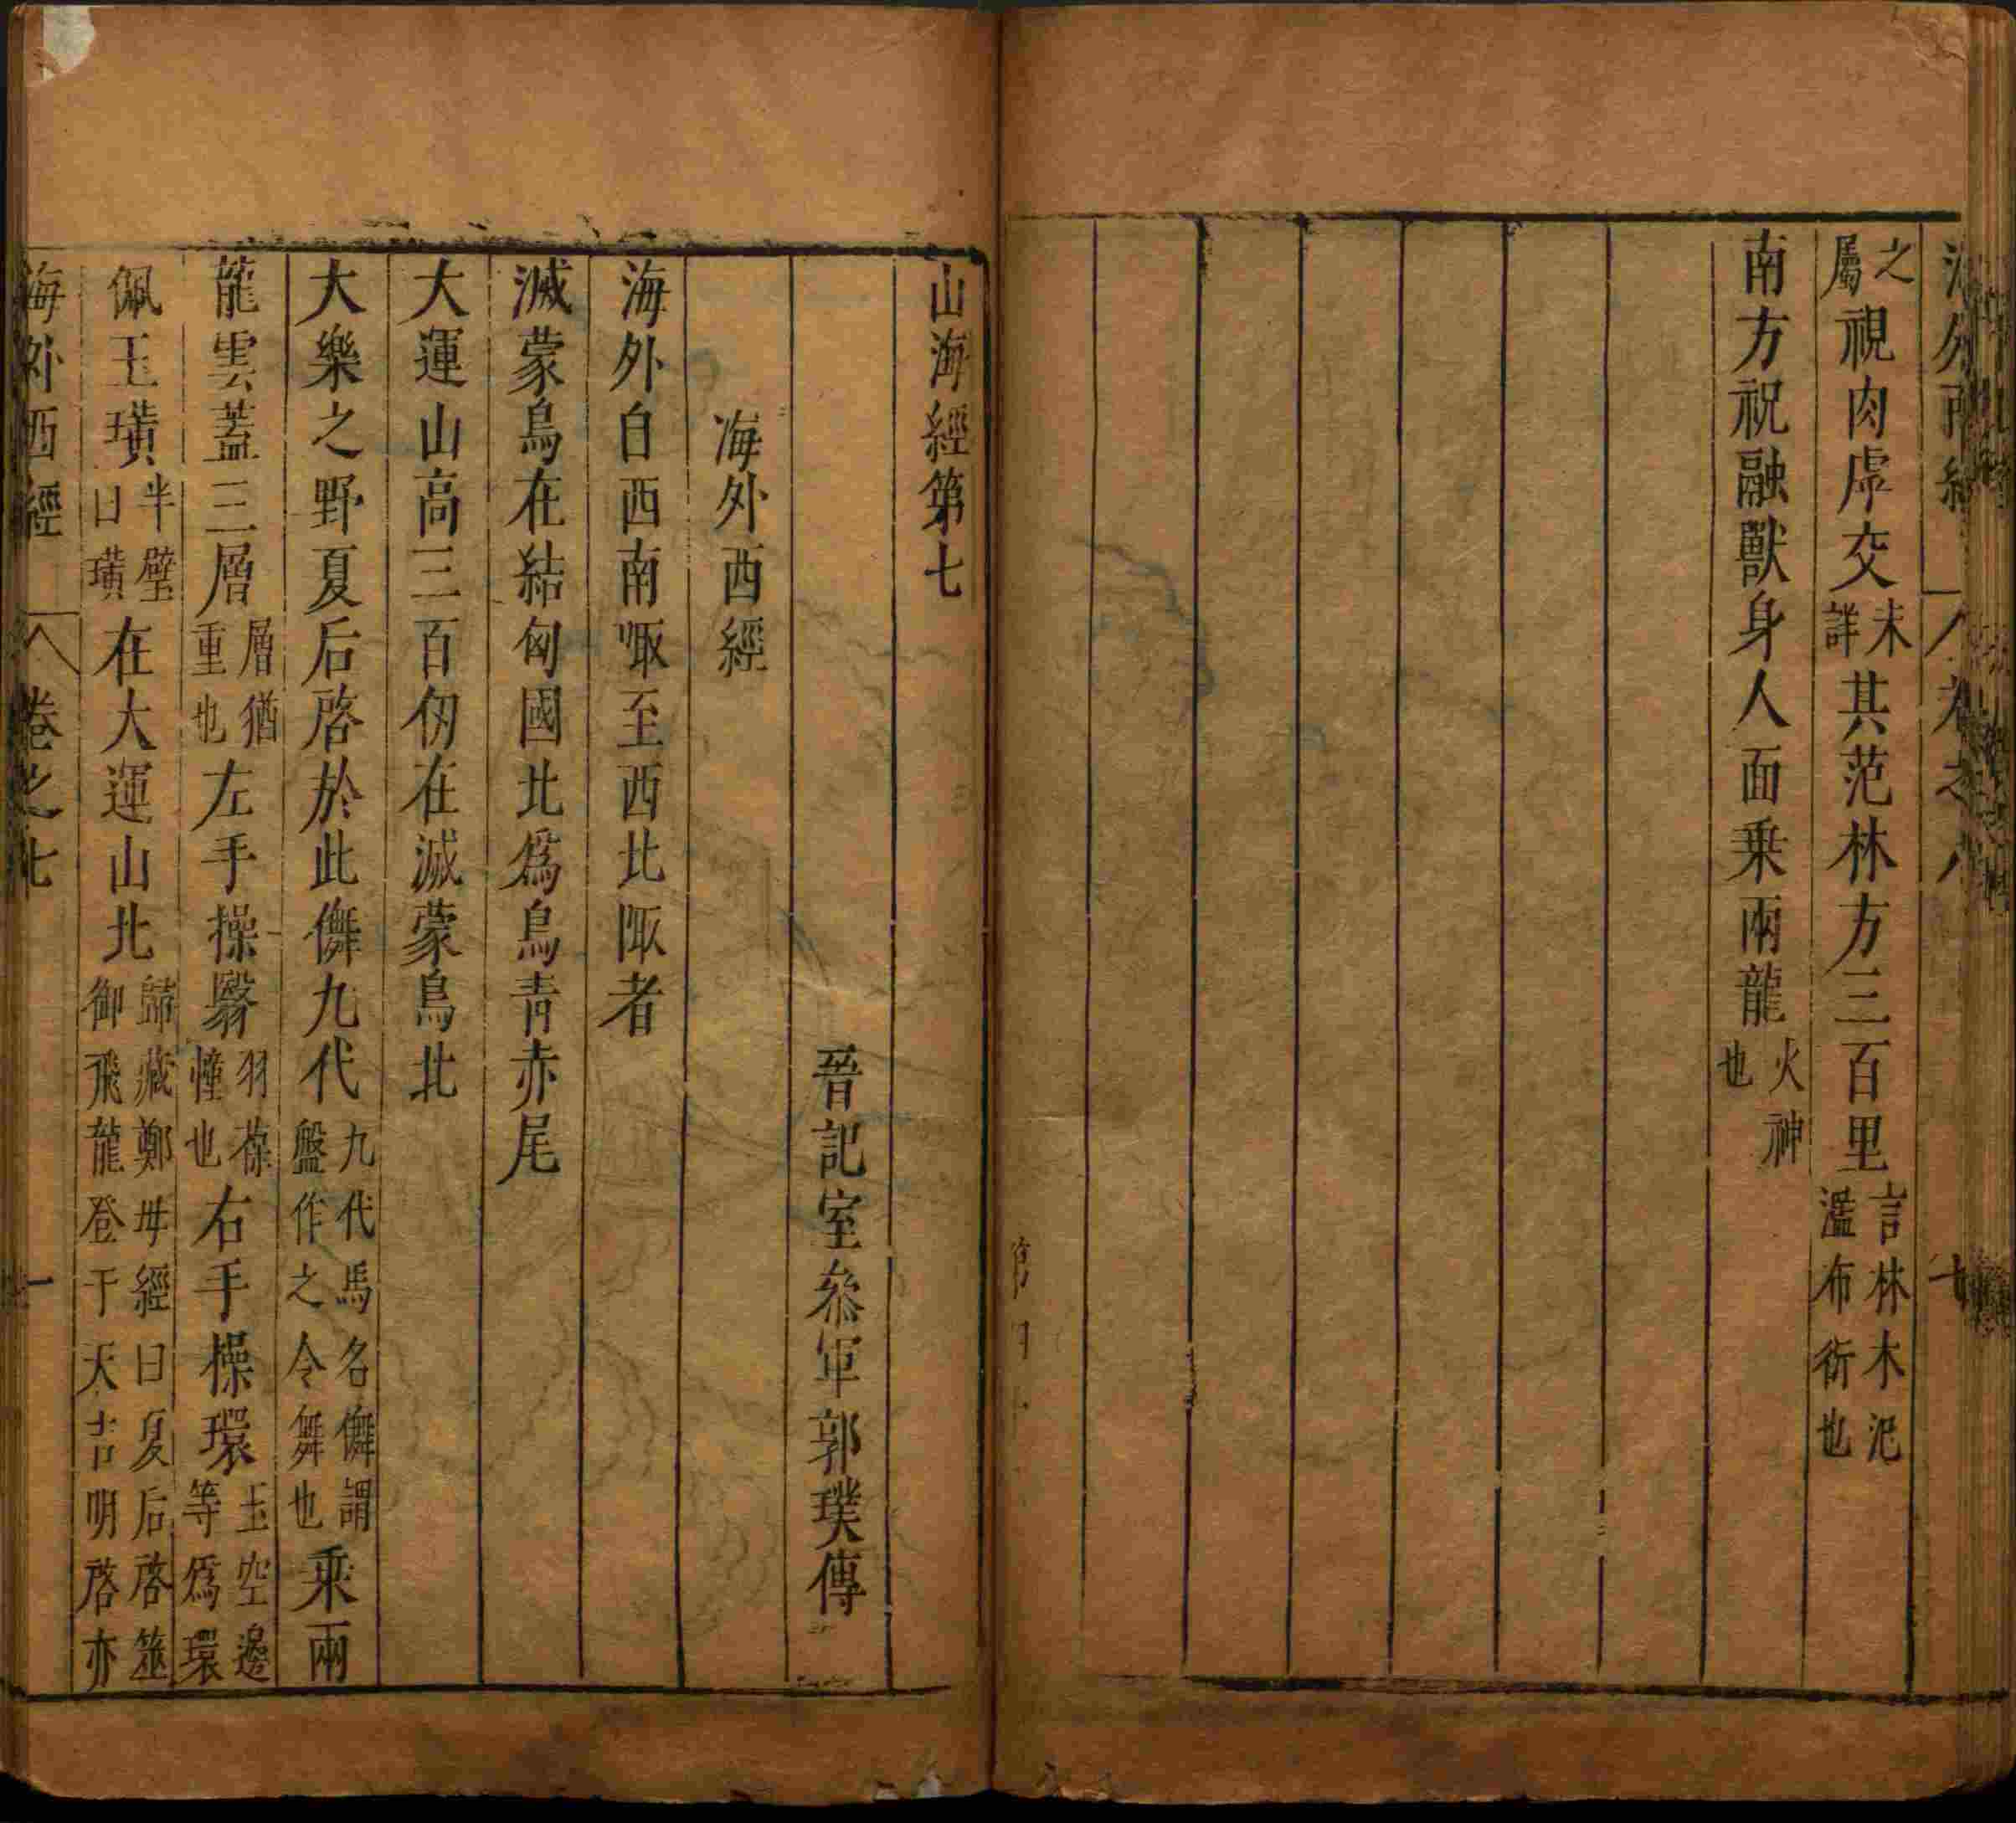 之屬視肉虖交未詳其范林方三百里言林木汜濫布衍也
南方祝融獸身人面乗兩龍火神也
山海經第七
晉記室叅軍郭璞傳
海外西經
海外自西南陬至西北陬者
滅蒙鳥在結匈國北爲鳥青赤尾
大運山高三百仞在滅蒙鳥北
大樂之野夏后啓於此儛九代九代馬名儛謂盤作之令舞也乗兩
龍雲蓋三層層猶重也左手操翳羽葆幢也右手操環玉空邊等爲環
佩玉璜半璧曰璜在大運山北歸藏鄭毋經曰夏后啓筮御飛龍登于天吉明啓亦
海外西經 卷之七 一